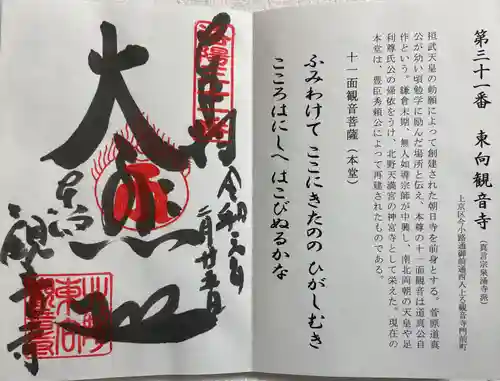 第三十一番 東向観音寺
(真言宗泉涌寺派)
上京区今小路通御前通西入上る観音寺門前町
桓武天皇の勅願によって創建された朝日寺を前身とする。菅原道真
公が幼い頃勉学に励んだ場所と伝え、本尊の十一面観音は道真公自
作という。鎌倉末期、無人如導宗師が中興し、南北両朝の天皇や足
利尊氏公の帰依をうけ、北野天満宮の神宮寺として栄えた。現在の
本堂は、豊臣秀頼公によって再建されたものである。
十一面観音菩薩(本堂)
ふみわけて ここにきたのの ひがしむき
こころはにしへ はこびぬるかな
令和六年
二月廿五日
大悲
観音寺